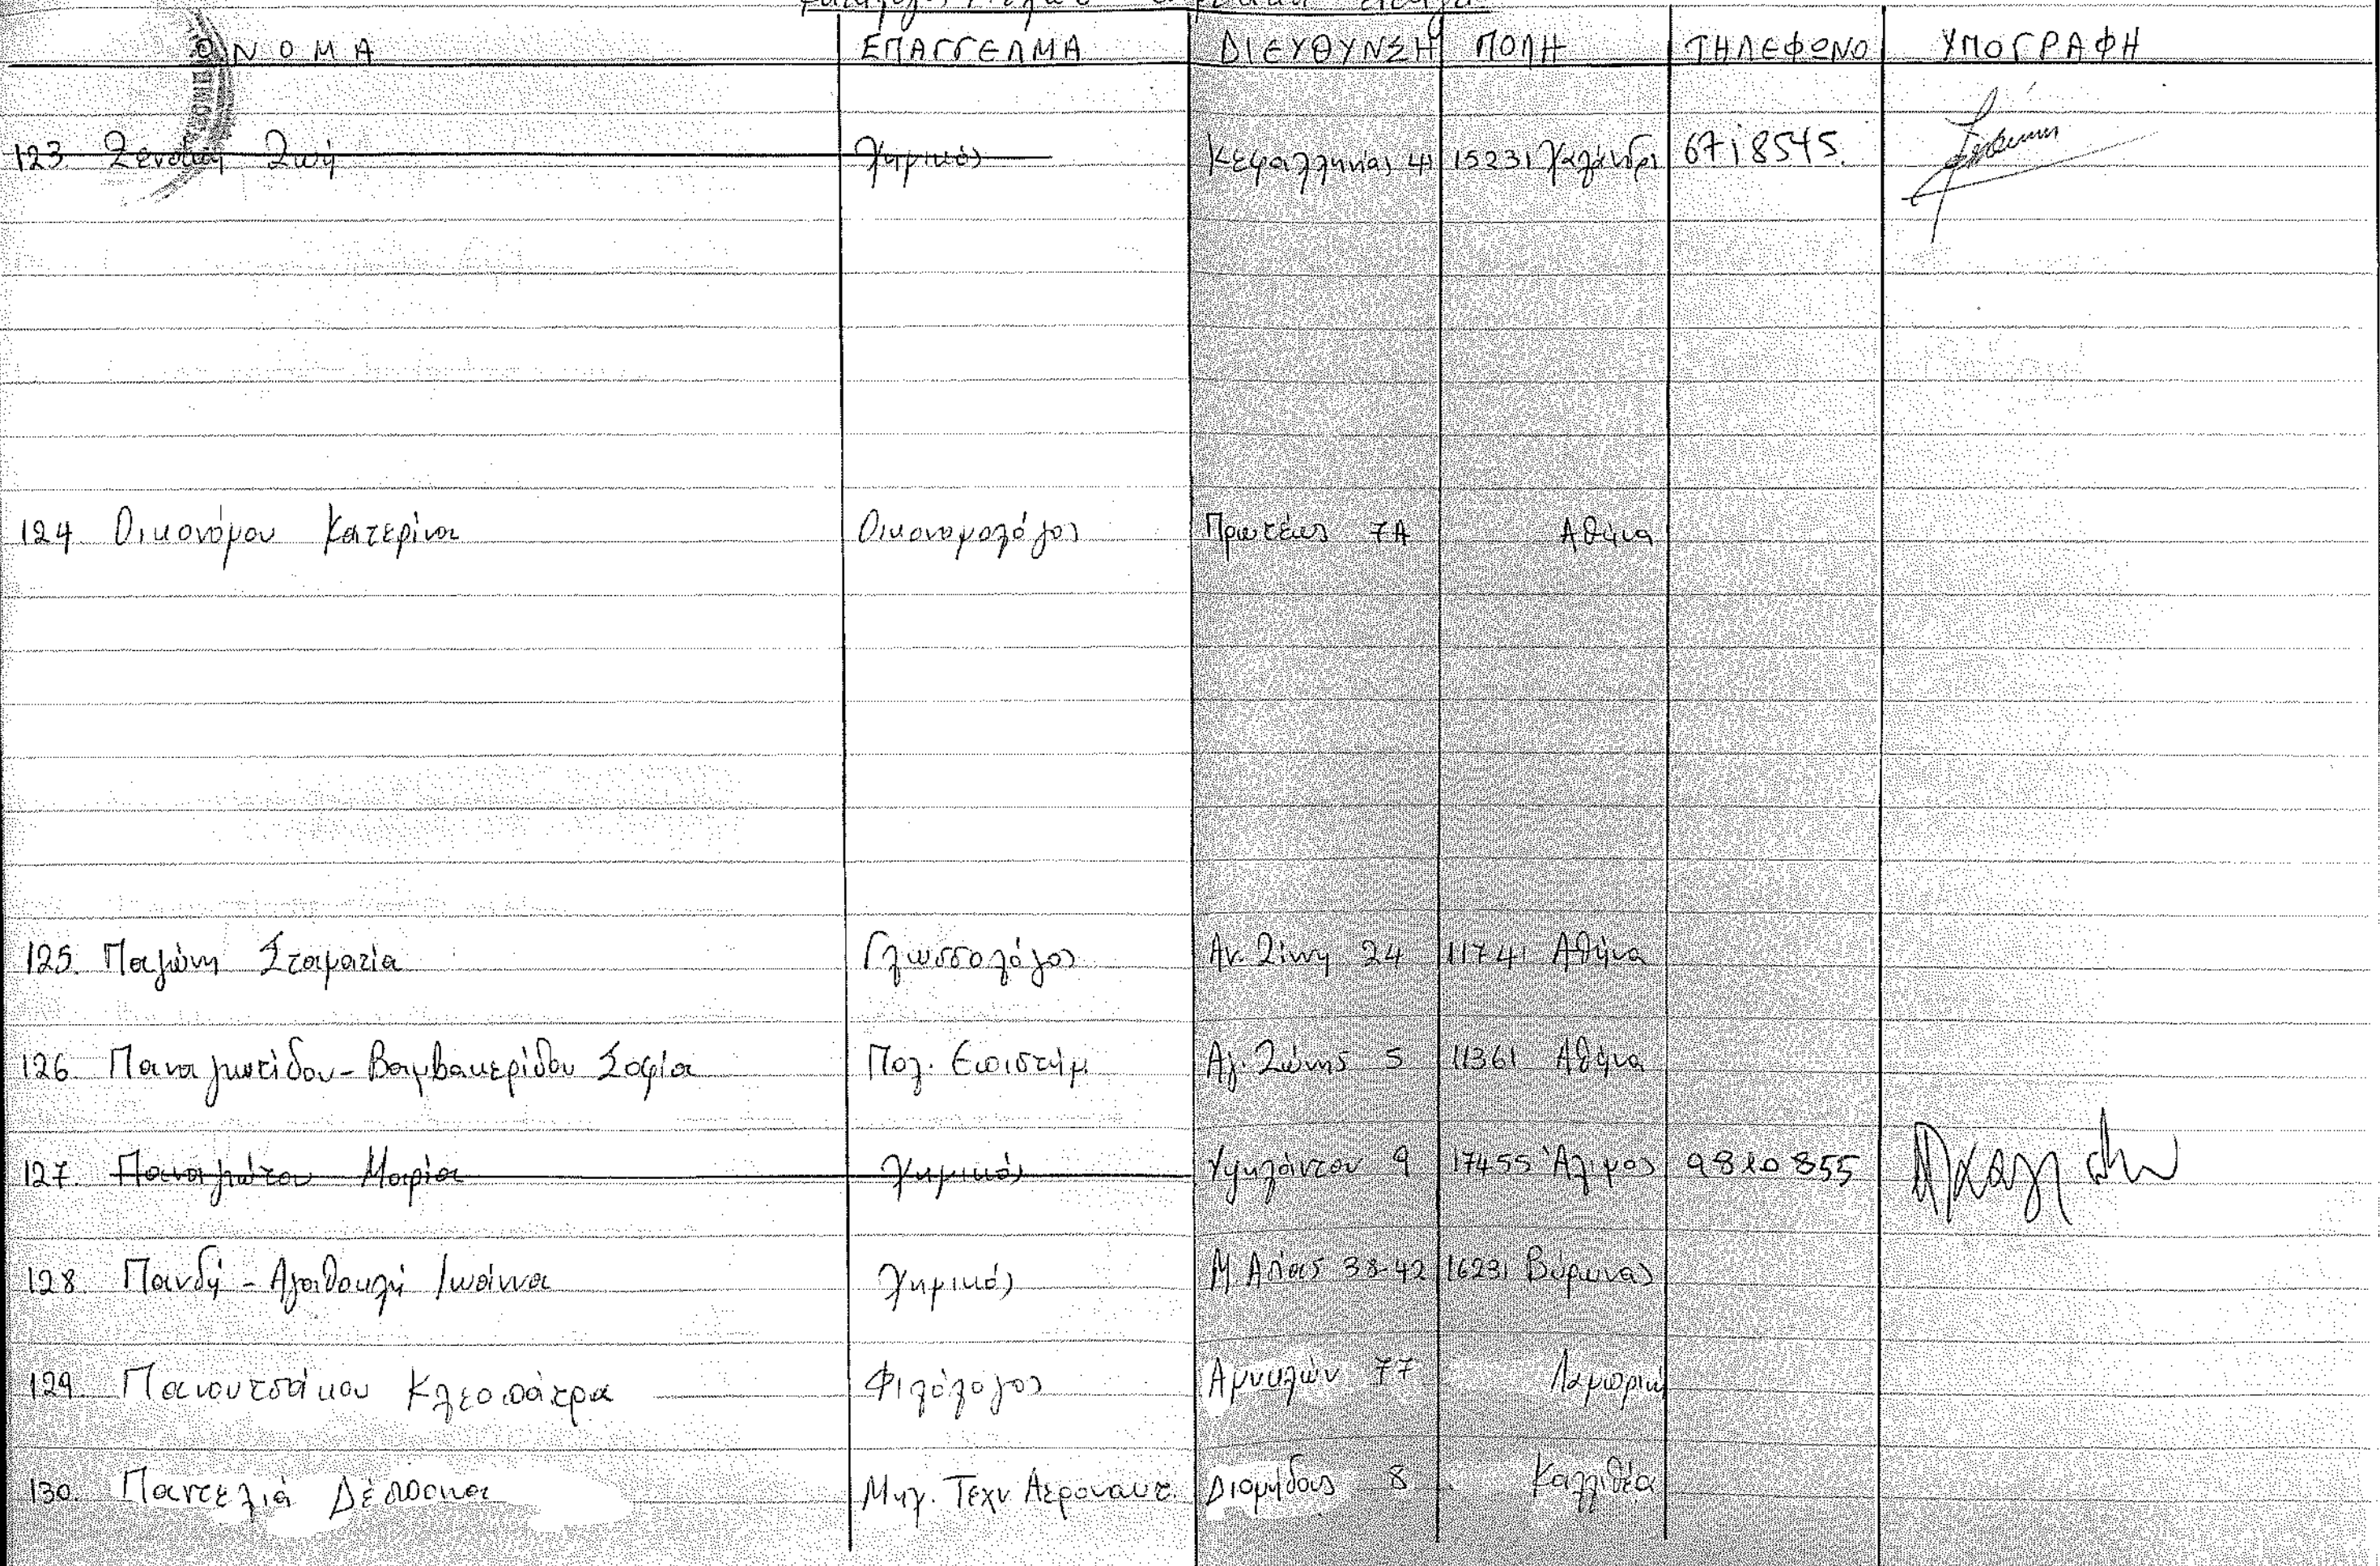 ΟΝΟΜΑ ΕΠΑΓΓΕΛΜΑ ΔΙΕΥΘΥΝΣΗ ΠΟΛΗ ΤΗΛΕΦΩΝΟ ΥΠΟΓΡΑΦΗ
123. Ζωή Χημικός Κεφαλληνίας 41 15231 Χαλάνδρι 6718545.
124. Οικονόμου Κατερίνα Οικονομολόγος Πρωτέως 7Α Αθήνα
125. Παγώνη Σταματία Γλωσσολόγος Αν. Ζίννη 24 11741 Αθήνα
126. Παναγιωτίδου - Βαμβακερίδου Σοφία Πολ. Επιστήμ Αγ. Ζώνης 5 11361 Αθήνα
127. Παναγιώτου Μαρία Χημικός Υψηλάντου 9 17455 Άλιμος 9820855
128. Πανδή - Αγαθοκλή Ιωάννα Χημικός Μ Ασίας 38-42 16231 Βύρωνας
129. Πανουτσάκου Κλεοπάτρα Φιλόλογος Αμυκλών 77 Λαμπρινή
130. Παντελιά Δέσποινα Μηχ. Τεχν. Αεροναυτ. Διομήδους 8 Καλλιθέα